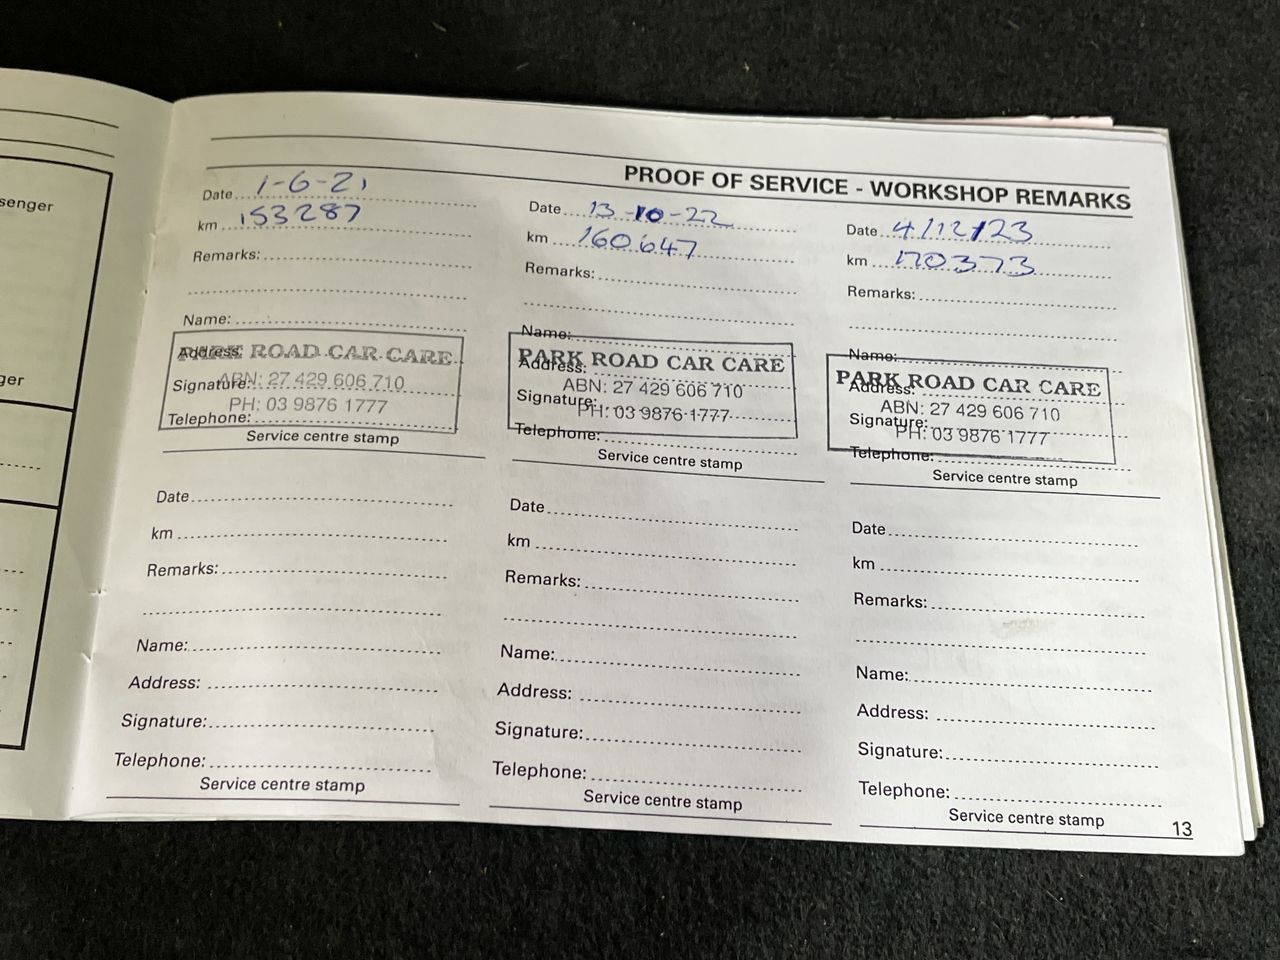 senger
ger
PROOF OF SERVICE - WORKSHOP REMARKS
Date 1-6-21
km 153287
Remarks:
Name:
Address:
PARK ROAD CAR CARE
Signature:
ABN: 27 429 606 710
PH: 03 9876 1777
Telephone:
Service centre stamp
Date 13-10-22
km 160647
Remarks:
Name:
PARK ROAD CAR CARE
Address:
ABN: 27 429 606 710
Signature:
PH: 03 9876 1777
Telephone:
Service centre stamp
Date 4/12/23
km 170373
Remarks:
Name:
PARK ROAD CAR CARE
Address:
ABN: 27 429 606 710
Signature:
PH: 03 9876 1777
Telephone:
Service centre stamp
Date
km
Remarks:
Name:
Address:
Signature:
Telephone:
Service centre stamp
Date
km
Remarks:
Name:
Address:
Signature:
Telephone:
Service centre stamp
Date
km
Remarks:
Name:
Address:
Signature:
Telephone:
Service centre stamp
13